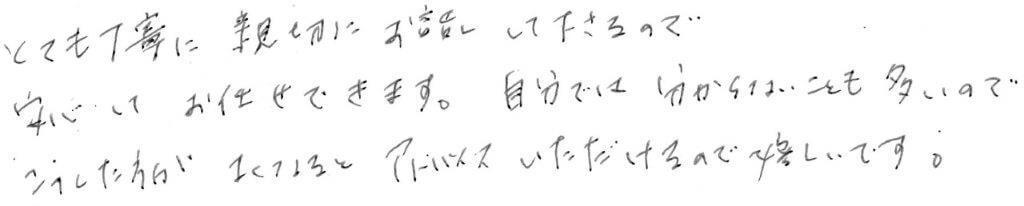 とても丁寧に 親切に お話し して下さるので
安心して お任せできます。 自分では 分からないことも 多いので
こうした方が よくなると アドバイス いただけるので 嬉しいです。